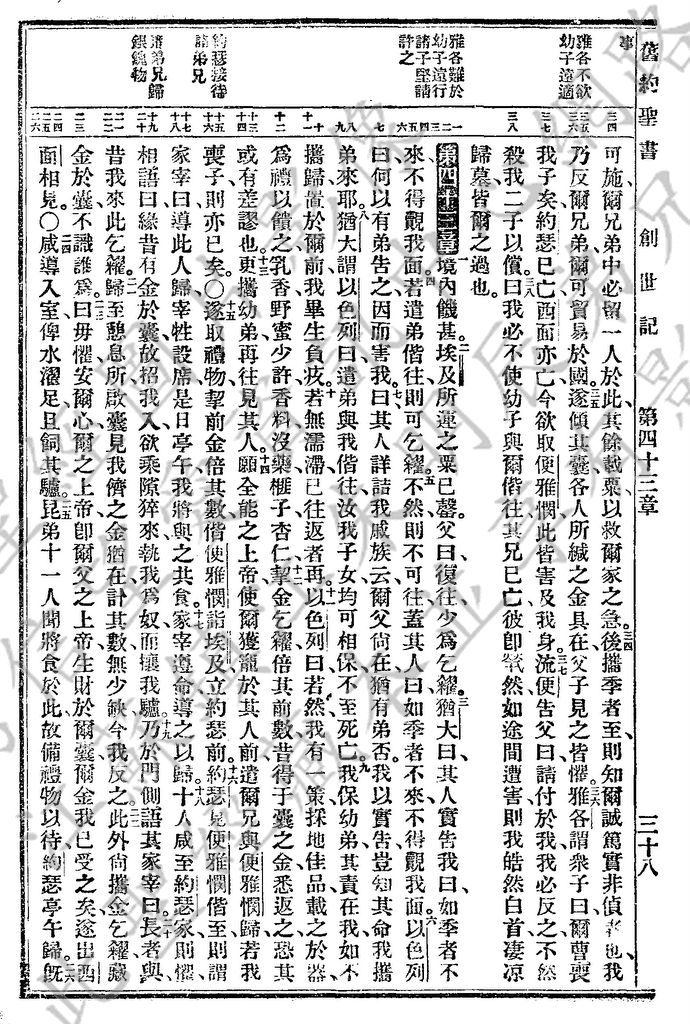 舊約聖書 創世記 第四十三章 三十八
雅各不欲幼子遠適
雅各難於幼子遠行諸子堅請許之
約瑟接待諸弟兄
諸弟兄歸銀饋物
可施爾兄弟中必留一人於此其餘載粟以救爾家之急後攜季者至則知爾誠篤實非偵者也我
乃反爾兄弟爾可貿易於國遂傾其囊各人所緘之金具在父子見之皆懼雅各謂眾子曰爾曹喪
我子矣約瑟已亡西面亦亡今欲取便雅憫此皆害及我身流便告父曰請付於我我必反之不然
殺我二子以償曰我必不使幼子與爾偕往其兄已亡彼卽煢然如途間遭害則我皓然白首凄凉
歸墓皆爾之過也
第四十三章 境內饑甚埃及所運之粟已罄父曰復往少為乞糴猶大曰其人實告我曰如季者不
來不得覿我面若遣弟偕往則可乞糴不然則不可往蓋其人曰如季者不來不得覿我面以色列
曰何以有弟告之因而害我曰其人詳詰我戚族云爾父尚在猶有弟否我以實告豈知其命我攜
弟來耶猶大謂以色列曰遣弟與我偕往汝我子女均可相保不至死亡我保幼弟其責在我如不
攜歸置於爾前我畢生負疚若無濡滯已往返者再以色列曰若然我有一策採地佳品載之於器
為禮以饋之乳香野蜜少許香料沒藥榧子杏仁挈金乞糴倍其前數昔得于囊之金悉返之恐其
或有差謬也更攜幼弟再往見其人願全能之上帝使爾獲寵於其人前遣爾兄與便雅憫歸若我
喪子則亦已矣〇遂取禮物挈前金倍其數偕便雅憫詣埃及立約瑟前約瑟見便雅憫偕至則謂
家宰曰導此人歸宰牲設席是日亭午我將與之共食家宰遵命導之以歸十人咸至約瑟家則懼
相語曰緣昔有金於囊故招我入欲乘隙猝來執我為奴而攘我驢乃於門側語其家宰曰長者與
昔我來此乞糴歸至憩息所啟囊見我儕之金猶在計其數無少缺今我反之此外尚攜金乞糴藏
金於囊不識誰為曰毋懼安爾心爾之上帝卽爾父之上帝生財於爾囊爾金我已受之矣遂出西
面相見〇咸導入室俾水濯足且飼其驢昆弟十一人聞將食於此故備禮物以待約瑟亭午歸旣